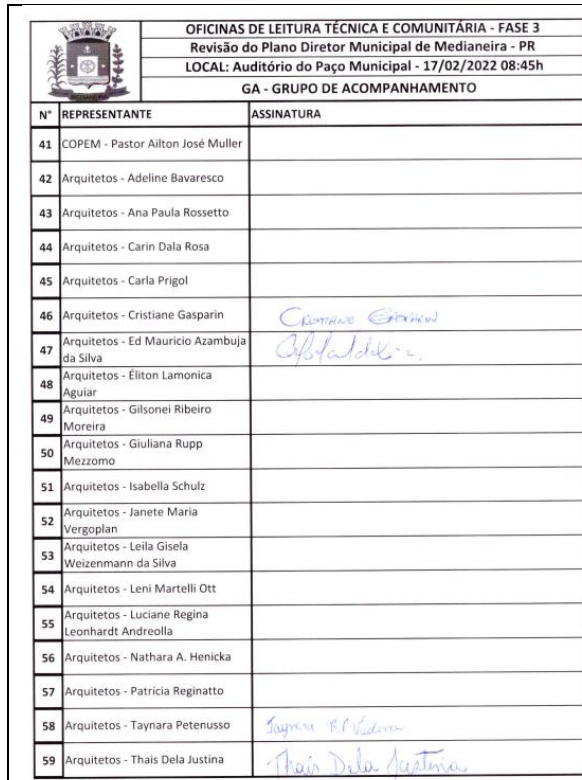 OFICINAS DE LEITURA TÉCNICA E COMUNITÁRIA - FASE 3
Revisão do Plano Diretor Municipal de Medianeira - PR
LOCAL: Auditório do Paço Municipal - 17/02/2022 08:45h
GA - GRUPO DE ACOMPANHAMENTO
N° REPRESENTANTE ASSINATURA
41 COPEM - Pastor Ailton José Muller
42 Arquitetos - Adeline Bavaresco
43 Arquitetos - Ana Paula Rossetto
44 Arquitetos - Carin Dala Rosa
45 Arquitetos - Carla Prigol
46 Arquitetos - Cristiane Gasparin
47 Arquitetos - Ed Mauricio Azambuja
da Silva
48 Arquitetos - Éliton Lamonica
Aguiar
49 Arquitetos - Gilsonei Ribeiro
Moreira
50 Arquitetos - Giuliana Rupp
Mezzomo
51 Arquitetos - Isabella Schulz
52 Arquitetos - Janete Maria
Vergoplan
53 Arquitetos - Leila Gisela
Weizenmann da Silva
54 Arquitetos - Leni Martelli Ott
55 Arquitetos - Luciane Regina
Leonhardt Andreolla
56 Arquitetos - Nathara A. Henicka
57 Arquitetos - Patrícia Reginatto
58 Arquitetos - Taynara Petenusso
59 Arquitetos - Thais Dela Justina Thais Dela Justina